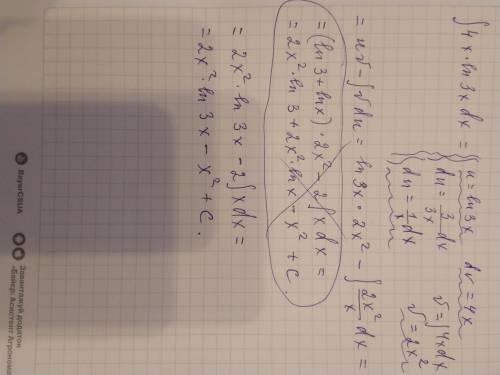 ∫4x·ln3xdx = || u = ln3x dv = 4x
du = 3/3x dx v = ∫4xdx
du = 1/x dx v = 2x²
= uv - ∫vdu = ln3x·2x² - ∫2x²/x dx =
= (ln3 + lnx)·2x² - 2∫xdx =
= 2x²·ln3 + 2x²·lnx - x² + C.
= 2x²·ln3x - 2∫xdx =
= 2x²·ln3x - x² + C.
BayerCSUA
Завантажуй додаток
«Байєр: Асистент Агронома